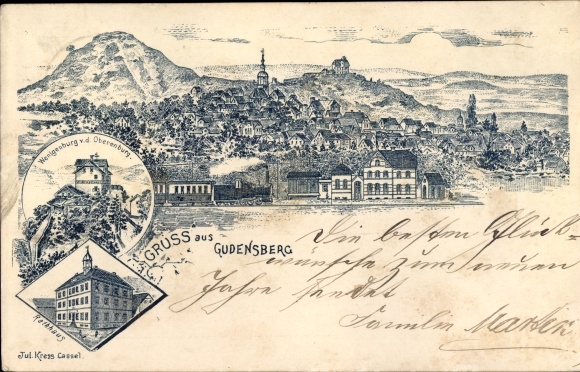 Wenigenburg v. d. Oberenburg.
GRUSS aus
GUDENSBERG
Rathhaus
Jul. Kress Cassel.
Die besten Glück-
wünsche zum neuen
Jahre sendet
Familie